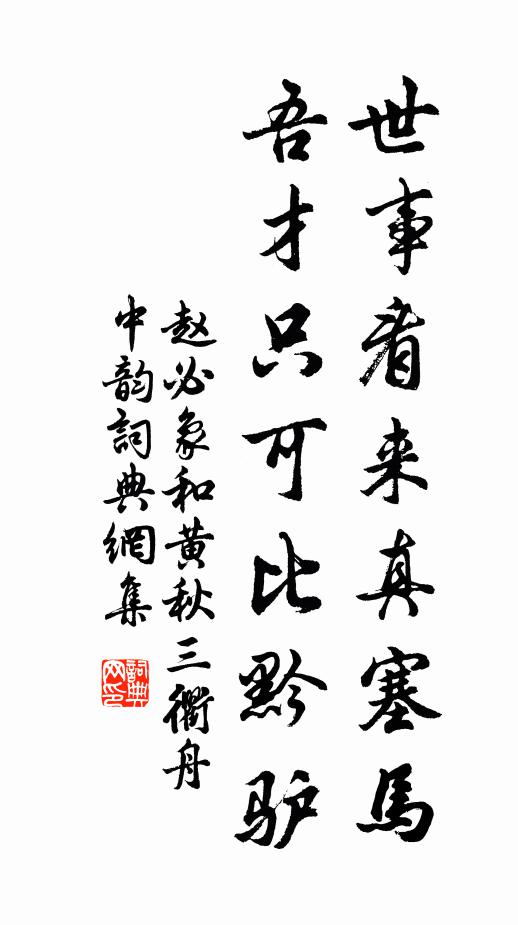 世事看来真塞馬
吾才只可比黔驴
赵必象和黄秋三衢舟
中韵詞典網集
詞典網印